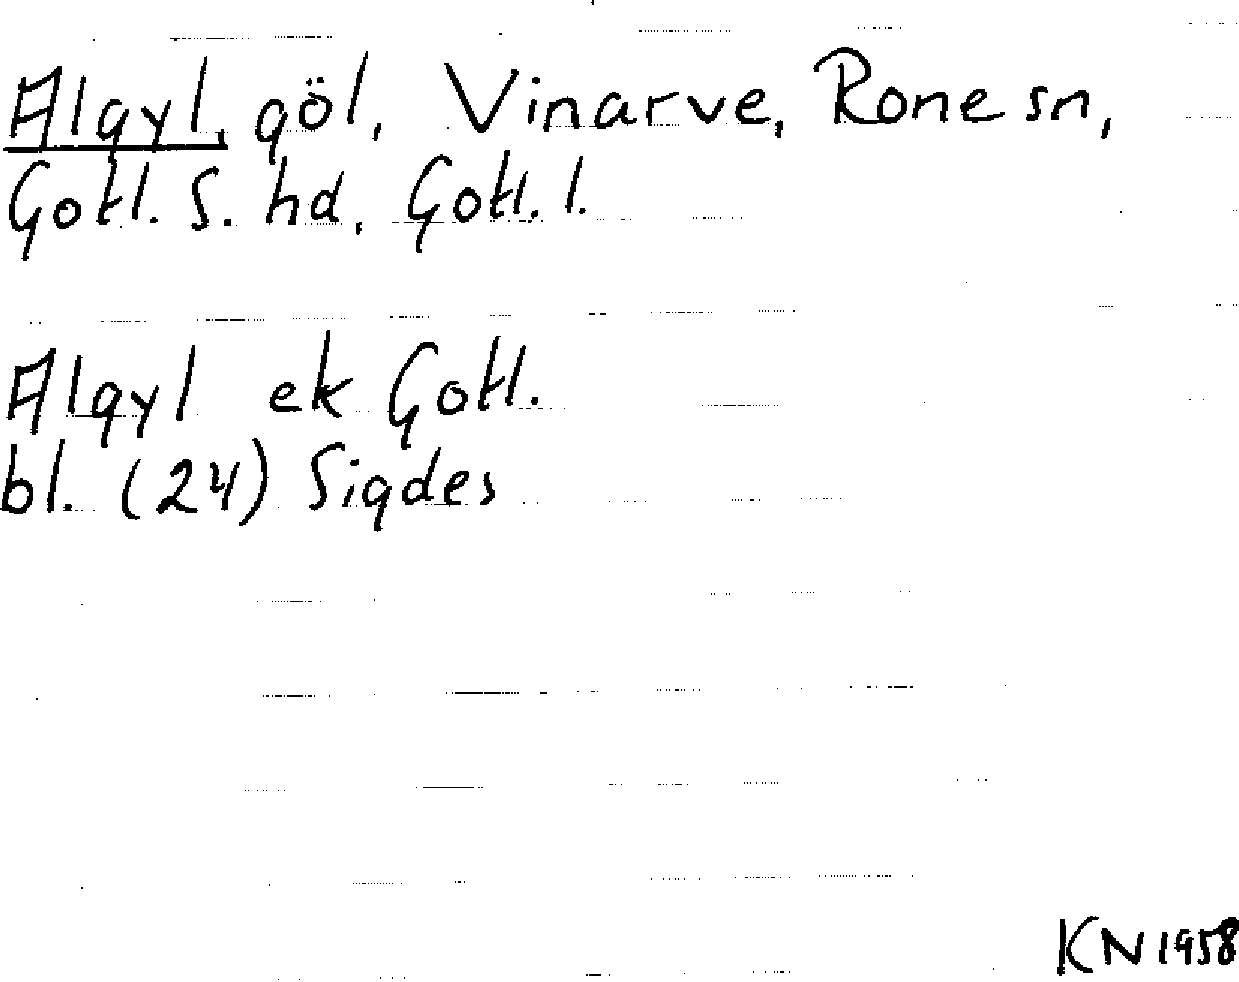 Algyl, göl, Vinarve, Rone sn,
Gotl. S. hd, Gotl. l.
Algyl ek Gotl.
bl. (24) Sigdes
KN 1958